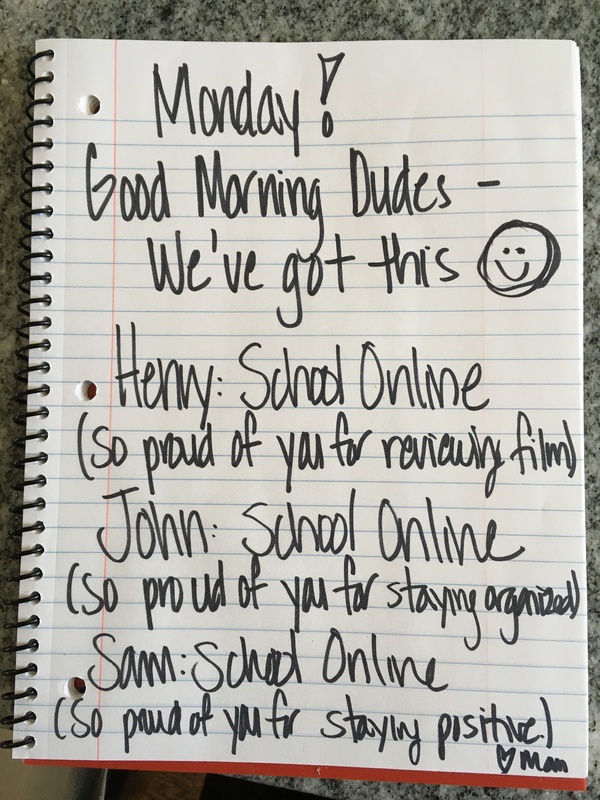 Monday!
Good Morning Dudes -
We've got this
Henry: School Online
(So proud of you for reviewing film)
John: School Online
(So proud of you for staying organized)
Sam: School Online
(So proud of you for staying positive)
♡ Mom